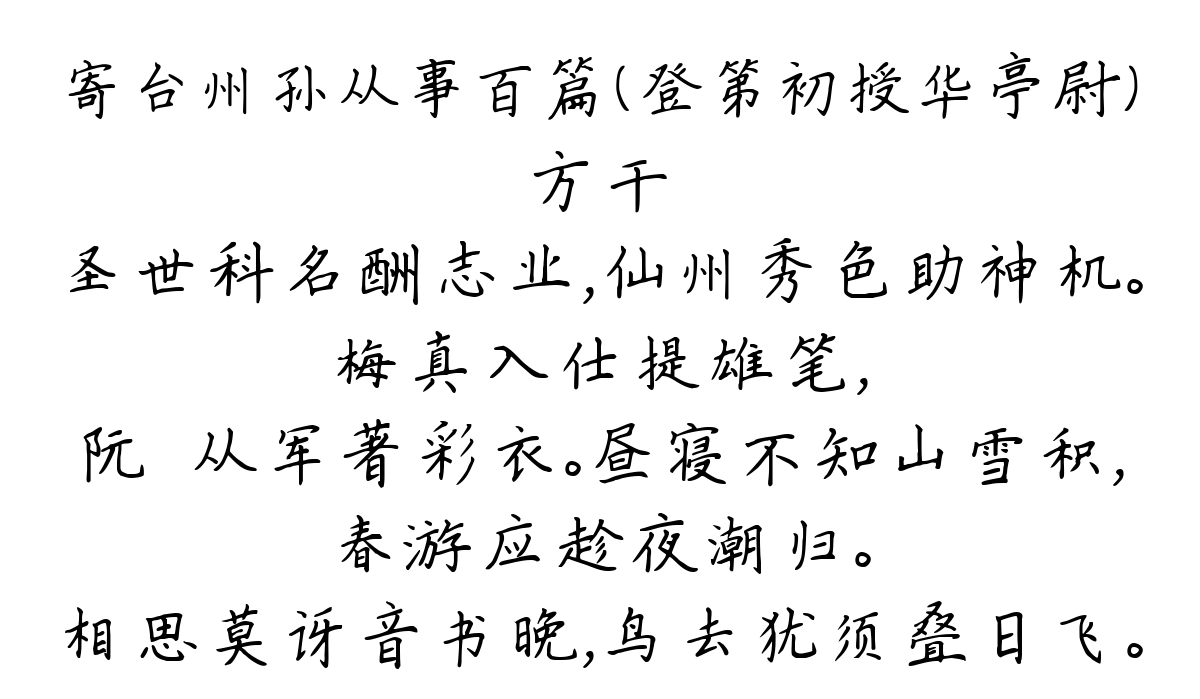 寄台州孙从事百篇(登第初授华亭尉)
方干
圣世科名酬志业,仙州秀色助神机。
梅真入仕提雄笔,
阮 从军著彩衣。昼寝不知山雪积,
春游应趁夜潮归。
相思莫讶音书晚,鸟去犹须叠日飞。